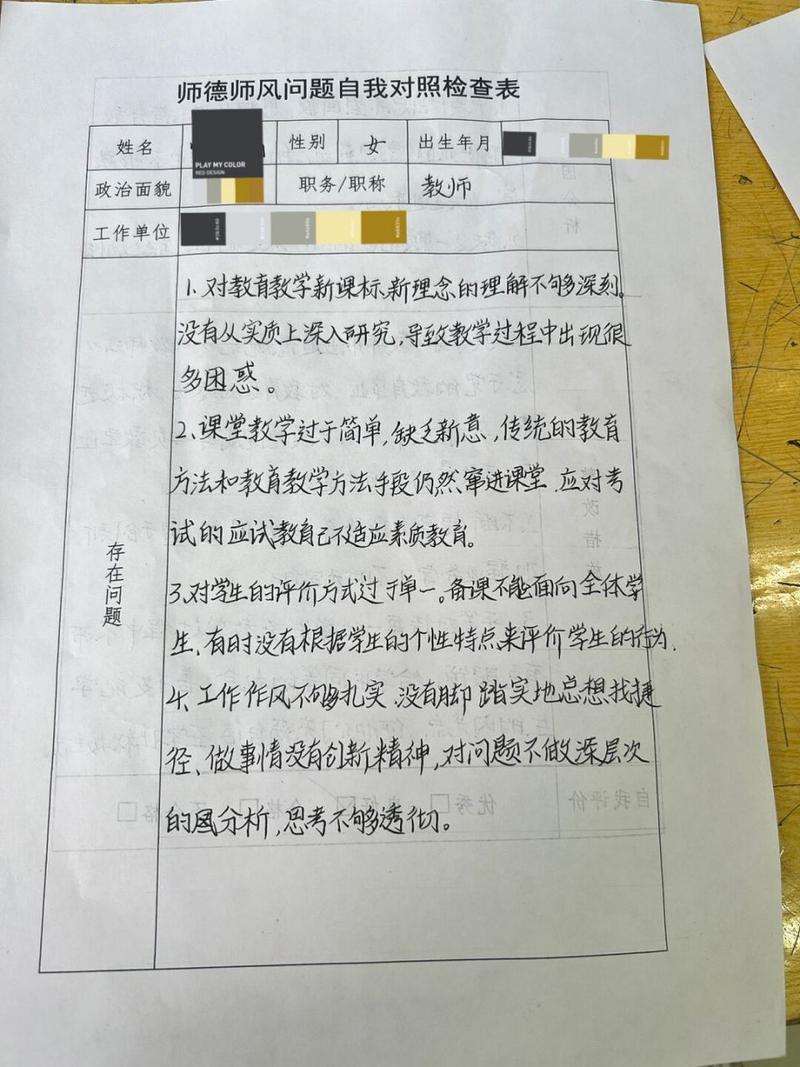 师德师风问题自我对照检查表
姓名 性别 女 出生年月
PLAY MY COLOR
RED DESIGN
政治面貌 职务/职称 教师
工作单位
存在问题
1.对教育教学新课标、新理念的理解不够深刻。
没有从实质上深入研究,导致教学过程中出现很
多困惑。
2、课堂教学过于简单,缺乏新意,传统的教育
方法和教育教学方法手段仍然窜进课堂.应对考
试的应试教自己不适应素质教育。
3、对学生的评价方式过于单一。备课不能面向全体学
生、有时没有根据学生的个性特点来评价学生的行为.
4、工作作风不够扎实.没有脚踏实地总想找捷
径、做事情没有创新精神,对问题不做深层次
的因分析,思考不够透彻。
自我评价
优秀